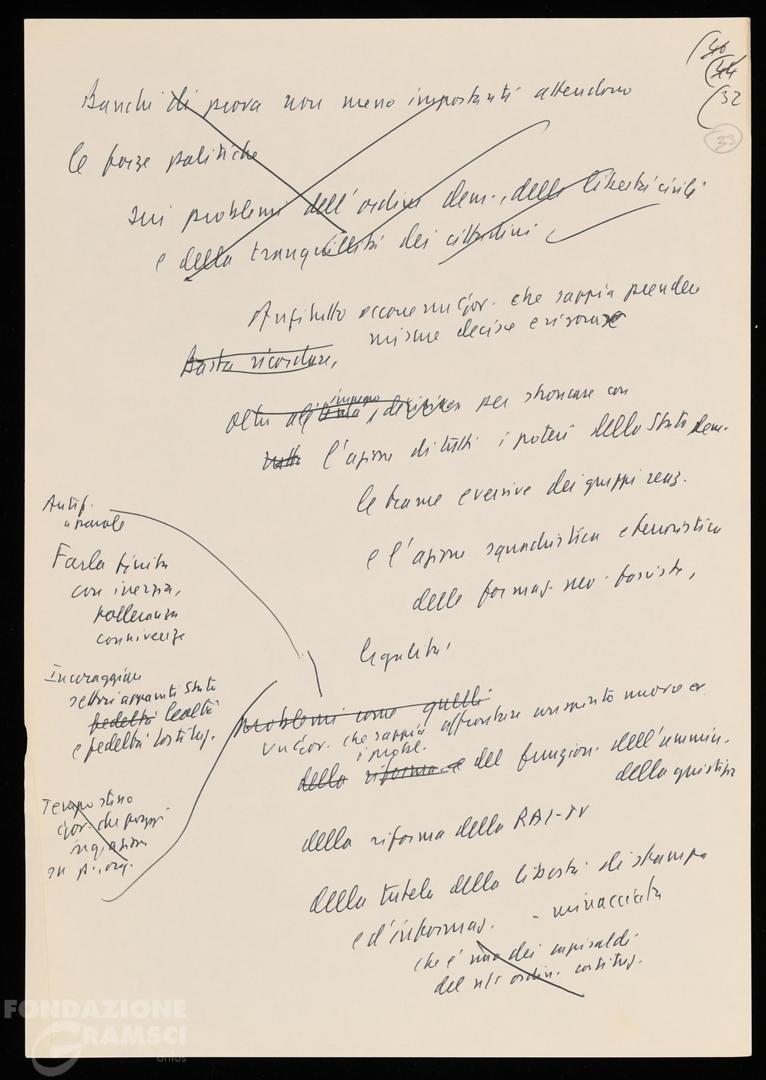 (36
(44
(32
33
Banchi di prova non meno importanti attendono
le forze politiche
sui problemi dell'ordine dem., delle libertà civili
e della tranquillità dei cittadini
Anzitutto occorre un Gov. che sappia prendere
misure decise e rigorose
Basta ricordare,
oltre all' impegno per stroncare con
tutta l'azione di tutti i poteri dello Stato dem.
le trame eversive dei gruppi reaz.
e l'azione squadristica e terroristica
delle formaz. neo-fasciste,
legalità'
Antif.
a parole
Farla finita
con inerzia,
tolleranza
connivenze
Incoraggiare
settori apparati Stato
fedeltà lealtà
e fedeltà costituz.
problemi come quelli
un Gov. che sappia affrontare con spirito nuovo
i probl.
della riforma e del funzion. dell'ammin.
della giustizia
gov. che
della riforma della RAI-TV
della tutela della libertà di stampa
e d'informaz. - minacciata
che è uno dei capisaldi
del ns ordin. costituz.
FONDAZIONE
GRAMSCI
onlus